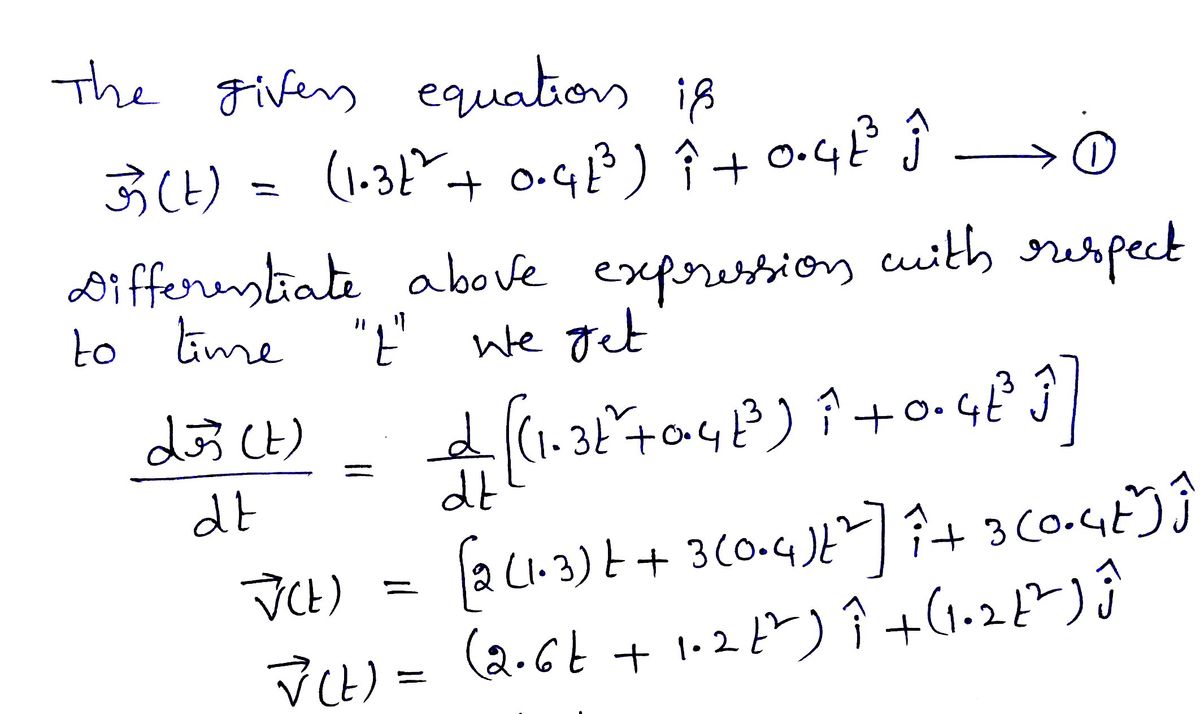 The given equation is
r⃗(t) = (1.3t² + 0.4t³) î + 0.4t³ ĵ ⟶ ①
Differentiate above expression with respect
to time "t" we get
dr⃗(t)/dt = d/dt [(1.3t² + 0.4t³) î + 0.4t³ ĵ]
v⃗(t) = [2(1.3)t + 3(0.4)t²] î + 3(0.4t²) ĵ
v⃗(t) = (2.6t + 1.2t²) î + (1.2t²) ĵ